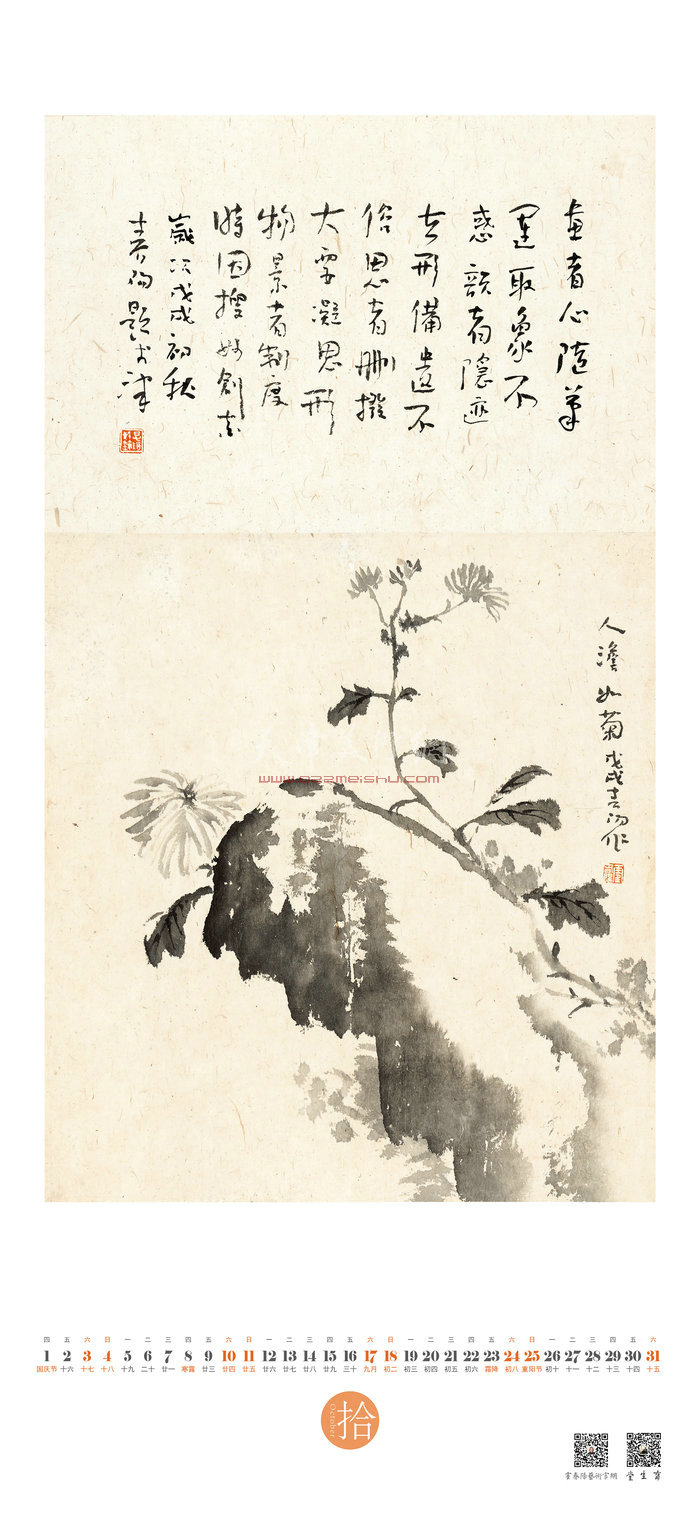 画者心随筆
運取象不
惑韻者隱迹
立形備遺不
俗思者删撥
大要凝思形
物景者制度
時因搜妙創真
歲次戊戌初秋
春阳題於津
人澹如菊 戊戌春阳作
www.022meishu.com
四 五 六 日 一 二 三 四 五 六 日 一 二 三 四 五 六 日 一 二 三 四 五 六 日 一 二 三 四 五 六
1 2 3 4 5 6 7 8 9 10 11 12 13 14 15 16 17 18 19 20 21 22 23 24 25 26 27 28 29 30 31
国庆节 十六 十七 十八 十九 二十 廿一 寒露 廿三 廿四 廿五 廿六 廿七 廿八 廿九 三十 九月 初二 初三 初四 初五 初六 霜降 初八 重阳节 初十 十一 十二 十三 十四 十五
October
拾
霍春陽藝術官網
育生堂